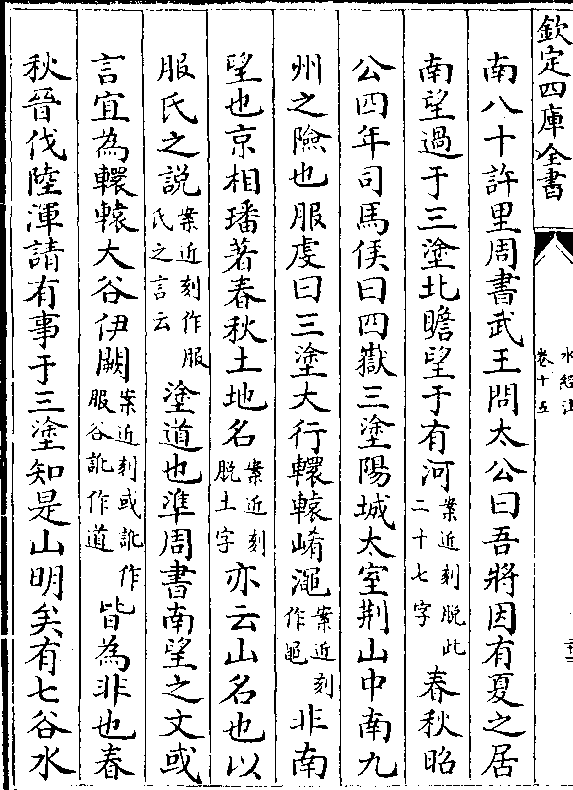 欽定四庫全書
水經注
卷十五
南八十許里周書武王問太公曰吾將因有夏之居
南望過于三塗北瞻望于有河案近刻脫此二十七字春秋昭
公四年司馬侯曰四嶽三塗陽城太室荆山中南九
州之險也服虔曰三塗大行轘轅崤澠案近刻作黽非南
望也京相璠著春秋土地名案近刻脫土字亦云山名也以
服氏之説案近刻作服氏之言云塗道也準周書南望之文或
言宜為轘轅大谷伊闕案近刻或訛作服谷訛作道皆為非也春
秋晉伐陸渾請有事于三塗知是山明矣有七谷水